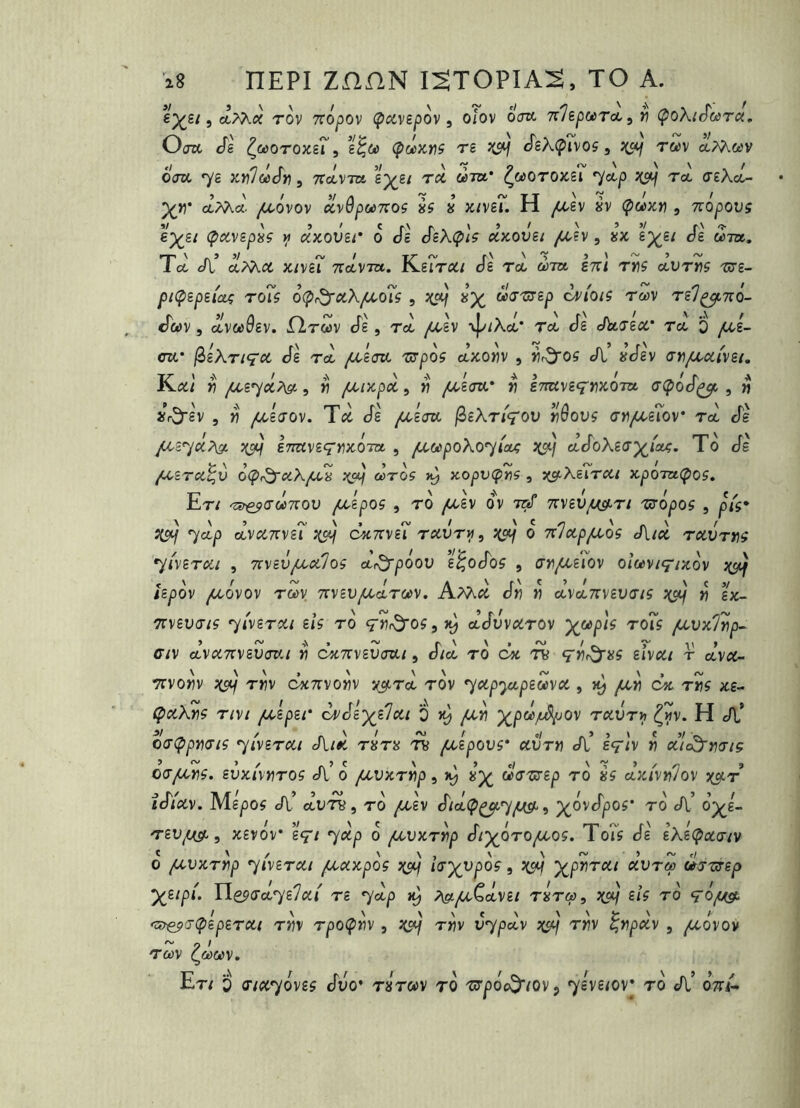 28 ΠΕΡΙ ΖΩΩΝ ΙΣΤΟΡΙΑΣ, ΤΟ Α.
ἔχει, ἀλλὰ τὸν πόρον φανερὸν, οἷον ὅσα πτερωτὰ, ἢ φολιδωτά.
Ὅσα δὲ ζωοτοκεῖ, ἔξω φώκης τε καὶ δελφῖνος, καὶ τῶν ἄλλων
ὅσα γε κητώδη, πάντα ἔχει τὰ ὦτα· ζωοτοκεῖ γὰρ καὶ τὰ σελά-
χη· ἀλλὰ μόνον ἄνθρωπος οὖς οὐ κινεῖ. Ἡ μὲν οὖν φώκη, πόρους
ἔχει φανεροὺς ᾗ ἀκούει· ὁ δὲ δελφὶς ἀκούει μὲν, οὐκ ἔχει δὲ ὦτα.
Τὰ δ' ἄλλα κινεῖ πάντα. Κεῖται δὲ τὰ ὦτα ἐπὶ τῆς αὐτῆς πε-
ριφερείας τοῖς ὀφθαλμοῖς, καὶ οὐχ ὥσπερ ἐνίοις τῶν τετραπό-
δων, ἄνωθεν. Ὤτων δὲ, τὰ μὲν ψιλά· τὰ δὲ δασέα· τὰ δὲ μέ-
σα· βέλτιστα δὲ τὰ μέσα πρὸς ἀκοὴν, ἦθος δ' οὐδὲν σημαίνει.
Καὶ ἢ μεγάλα, ἢ μικρὰ, ἢ μέσα· ἢ ἐπανεστηκότα σφόδρα, ἢ
οὐθὲν, ἢ μέσον. Τὰ δὲ μέσα βελτίστου ἤθους σημεῖον· τὰ δὲ
μεγάλα καὶ ἐπανεστηκότα, μωρολογίας καὶ ἀδολεσχίας. Τὸ δὲ
μεταξὺ ὀφθαλμοῦ καὶ ὠτὸς καὶ κορυφῆς, καλεῖται κρόταφος.
Ἔτι προσώπου μέρος, τὸ μὲν ὂν τῷ πνεύματι πόρος, ῥίς·
καὶ γὰρ ἀναπνεῖ καὶ ἐκπνεῖ ταύτῃ, καὶ ὁ πταρμὸς διὰ ταύτης
γίνεται, πνεύματος ἀθρόου ἔξοδος, σημεῖον οἰωνιστικὸν καὶ
ἱερὸν μόνον τῶν πνευμάτων. Ἀλλὰ δὴ ἡ ἀνάπνευσις καὶ ἡ ἔκ-
πνευσις γίνεται εἰς τὸ στῆθος, καὶ ἀδύνατον χωρὶς τοῖς μυκτῆρ-
σιν ἀναπνεῦσαι ἢ ἐκπνεῦσαι, διὰ τὸ ἐκ τοῦ στήθους εἶναι τὴν ἀνα-
πνοὴν καὶ τὴν ἐκπνοὴν κατὰ τὸν γαργαρεῶνα, καὶ μὴ ἐκ τῆς κε-
φαλῆς τινι μέρει· ἐνδέχεται δὲ καὶ μὴ χρώμενον ταύτῃ ζῇν. Ἡ δ'
ὄσφρησις γίνεται διὰ τούτου τοῦ μέρους· αὕτη δ' ἐστὶν ἡ αἴσθησις
ὀσμῆς. εὐκίνητος δ' ὁ μυκτὴρ, καὶ οὐχ ὥσπερ τὸ οὖς ἀκίνητον κατ'
ἰδίαν. Μέρος δ' αὐτοῦ, τὸ μὲν διάφραγμα, χόνδρος· τὸ δ' ὀχέ-
τευμα, κενόν· ἔστι γὰρ ὁ μυκτὴρ διχότομος. Τοῖς δὲ ἐλέφασιν
ὁ μυκτὴρ γίνεται μακρὸς καὶ ἰσχυρὸς, καὶ χρῆται αὐτῷ ὥσπερ
χειρί. Προσάγεταί τε γὰρ καὶ λαμβάνει τούτῳ, καὶ εἰς τὸ στόμα
προσφέρεται τὴν τροφὴν, καὶ τὴν ὑγρὰν καὶ τὴν ξηρὰν, μόνον
τῶν ζώων.
Ἔτι δὲ σιαγόνες δύο· τούτων τὸ πρόσθιον, γένειον· τὸ δ' ὀπί-